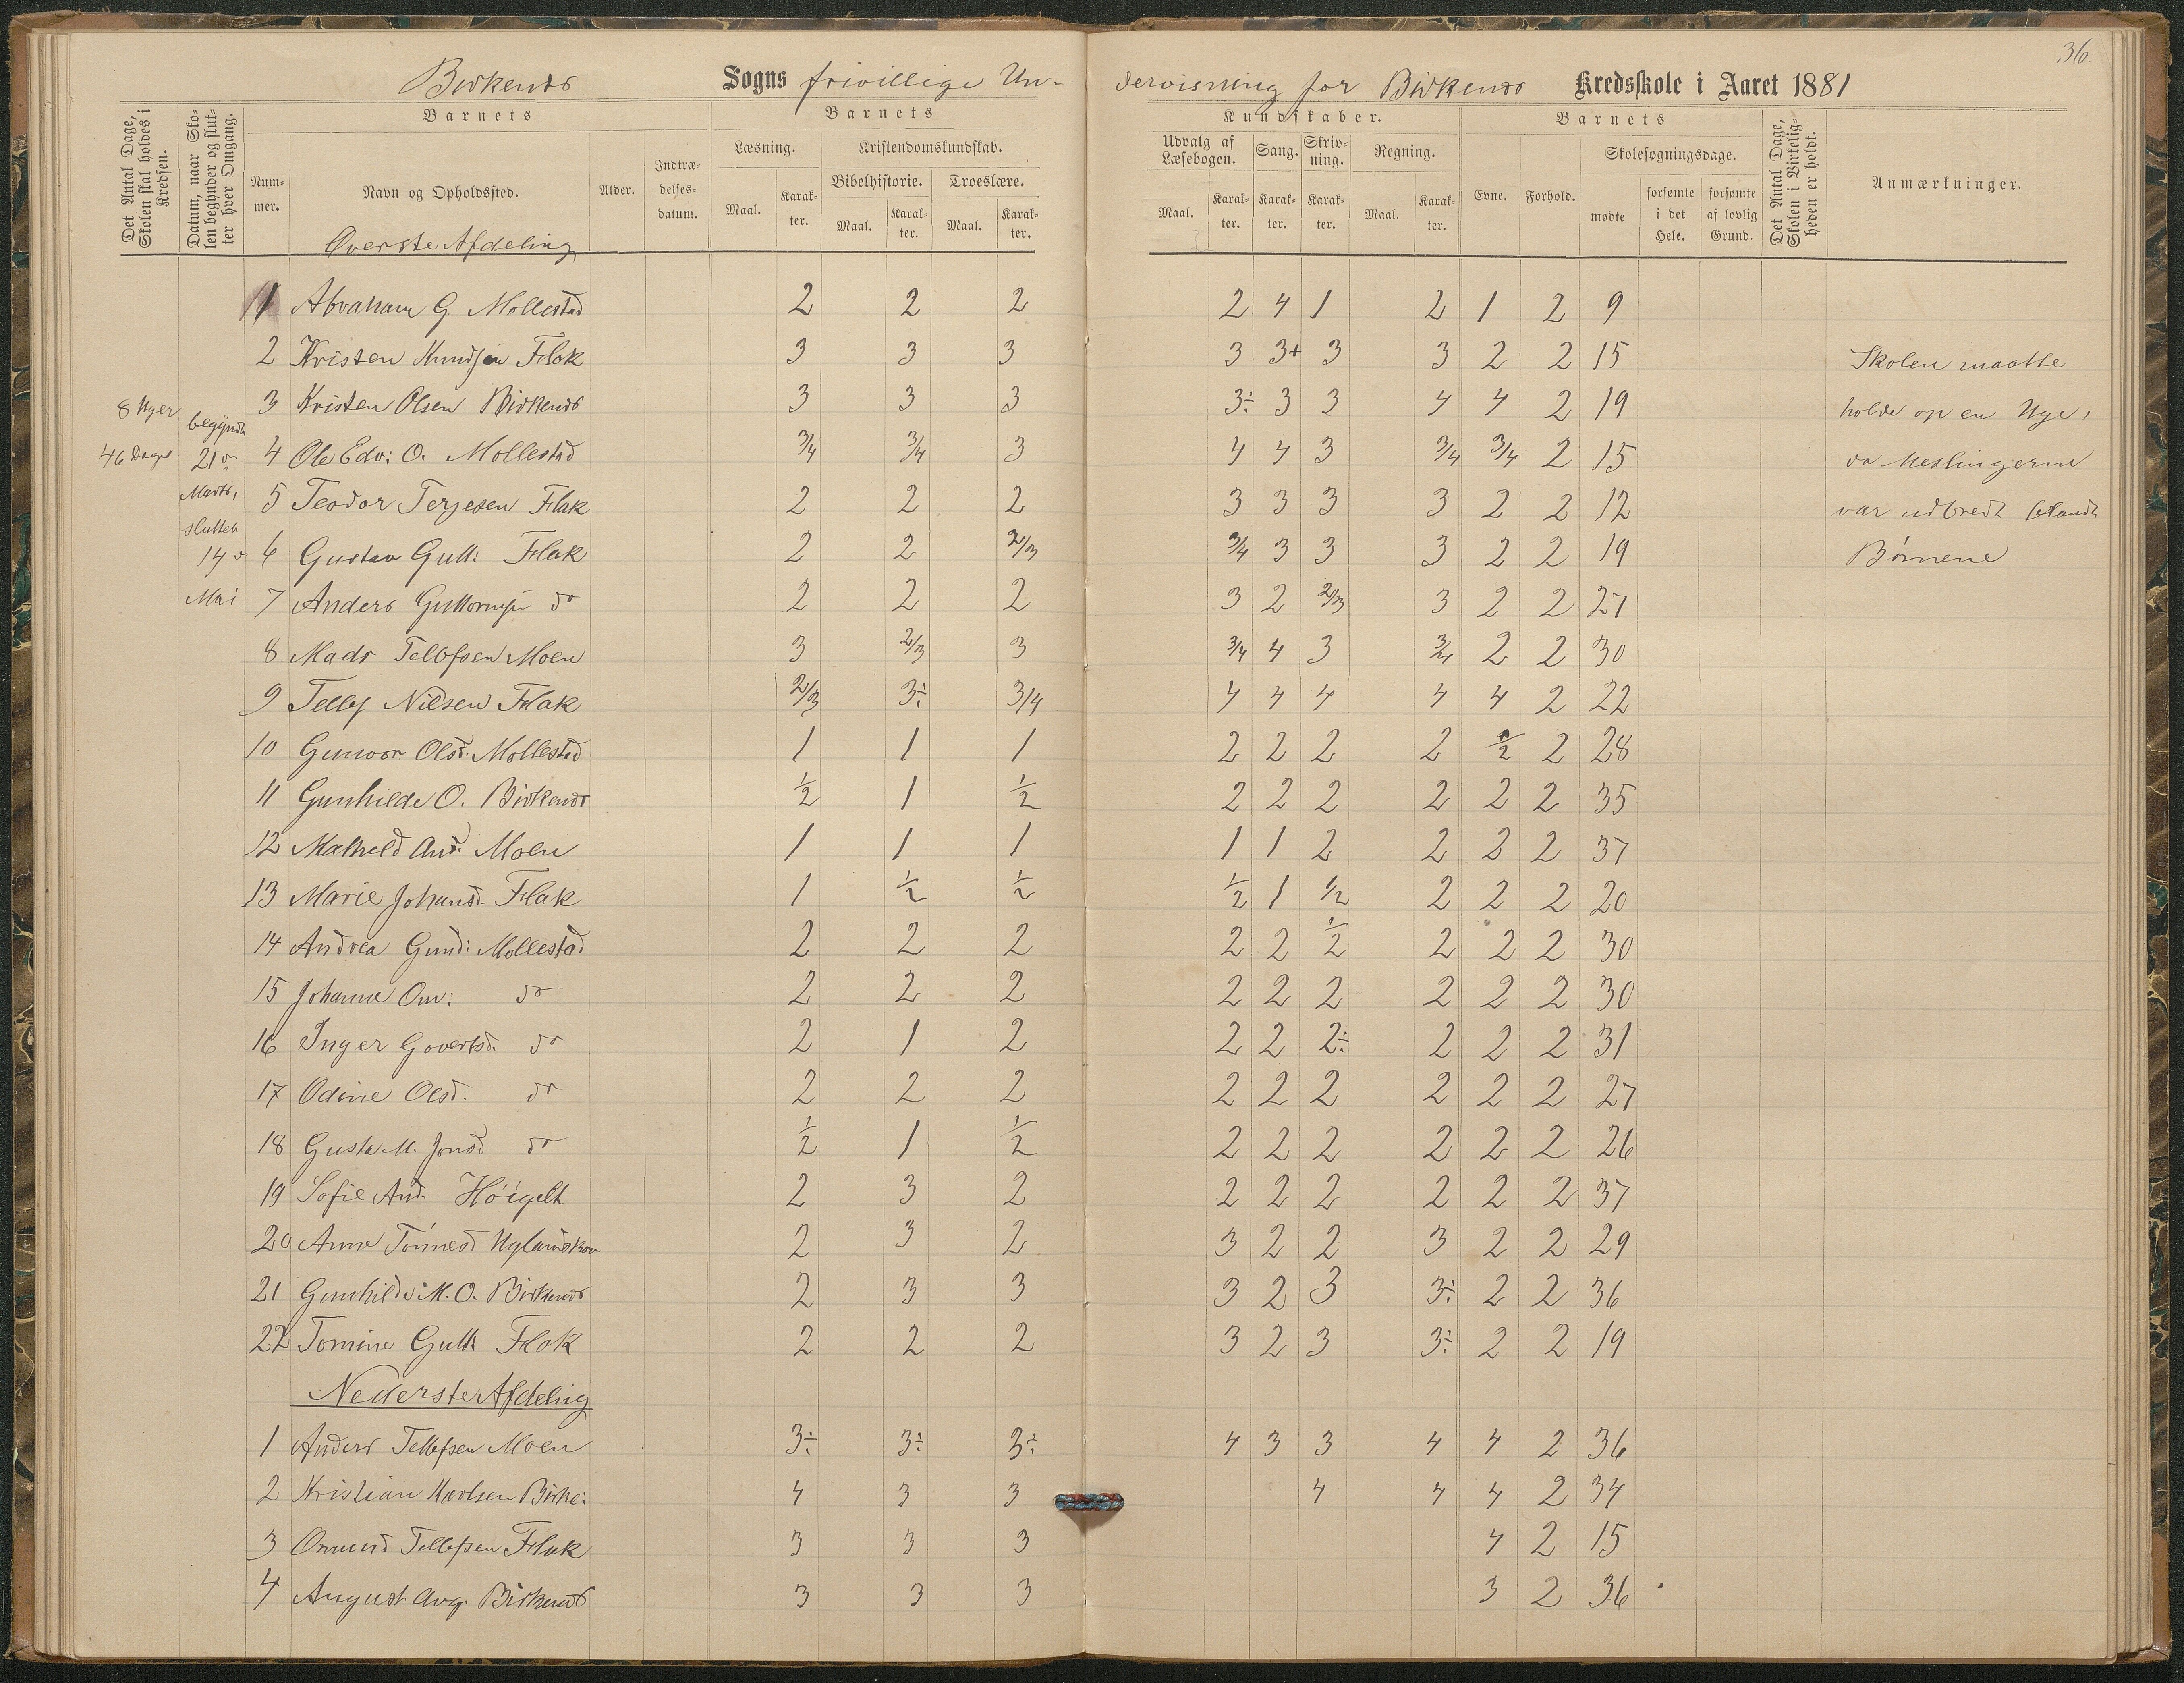 36.
Birkenes Sogns frivillige Undervisning for Birkenes Kredsskole i Aaret 1881
Det Antal Dage, Skolen skal holdes i Kredsen.
Datum, naar Skolen begynder og slutter hver Omgang.
Barnets
Nummer.
Navn og Opholdssted.
Alder.
Indtrædelsesdatum.
Barnets
Læsning.
Maal.
Karakter.
Kristendomskundskab.
Bibelhistorie.
Maal.
Karakter.
Troeslære.
Maal.
Karakter.
Kundskaber.
Udvalg af Læsebogen.
Maal.
Karakter.
Sang.
Karakter.
Skrivning.
Karakter.
Regning.
Maal.
Karakter.
Barnets
Evne.
Forhold.
Skolesøgningsdage.
mødte
forsømte i det Hele.
forsømte af lovlig Grund.
Det Antal Dage, Skolen i Virkeligheden er holdt.
Anmærkninger.
Øverste Afdeling
1 Abraham G. Mollestad 2 2 2 2 4 1 2 1 2 9
2 Kristen Knudsen Flak 3 3 3 3 3+ 3 3 2 2 15
3 Kristen Olsen Birkenes 3 3 3 3÷ 3 3 4 4 2 19
4 Ole Edv: O. Mollestad 3/4 3/4 3 4 4 3 3/4 3/4 2 15
5 Teodor Terjesen Flak 2 2 2 3 3 3 3 2 2 12
6 Gustav Gutt: Flak 2 2 2/3 3/4 3 3 3 2 2 19
7 Anders Guttormsen do 2 2 2 3 2 2/3 3 2 2 27
8 Mads Tellefsen Moen 3 2/3 3 3/4 4 3 3/4 2 2 30
9 Tellef Nilsen Flak 2/3 3÷ 3/4 4 4 4 4 4 2 22
10 Gunvor Olsd. Mollestad 1 1 1 2 2 2 2 1/2 2 28
11 Gunhilde O. Birkenes 1/2 1 1/2 2 2 2 2 2 2 35
12 Mathild And. Moen 1 1 1 1 1 2 2 2 2 37
13 Marie Johansd. Flak 1 1/2 1/2 1/2 1 1/2 2 2 2 20
14 Andrea Gund: Mollestad 2 2 2 2 2 1/2 2 2 2 30
15 Johanne Om: do 2 2 2 2 2 2 2 2 2 30
16 Inger Govertsd. do 2 1 2 2 2 2÷ 2 2 2 31
17 Odine Olsd. do 2 2 2 2 2 2 2 2 2 27
18 Gusta M. Jonsd do 1/2 1 1/2 2 2 2 2 2 2 26
19 Sofie And. Høigelt 2 3 2 2 2 2 2 2 2 37
20 Anne Tønnesd Uglandskov 2 3 2 3 2 2 3 2 2 29
21 Gunhilde M. O. Birkenes 2 3 3 3 2 3 3÷ 2 2 36
22 Tomine Gutt: Flak 2 2 2 3 2 3 3÷ 2 2 19
Nederste Afdeling
1 Anders Tellefsen Moen 3÷ 3÷ 3÷ 4 3 3 4 4 2 36
2 Kristian Karlsen Birke: 4 3 3 4 4 4 2 34
3 Omund Tellefsen Flak 3 3 3 4 2 15
4 August Aug. Birkenes 3 3 3 3 2 36
8 Uger
46 Dage
begyndte
21de
Marts,
sluttet
14de
Mai
Skolen maatte
holde op en Uge,
da Meslingerne
var udbredt blandt
Børnene